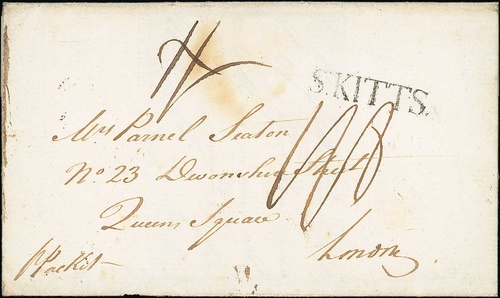 S. KITTS.
Mrs Parnel Seaton
No 23 Devonshire Street
Queens Square
London
p Packet